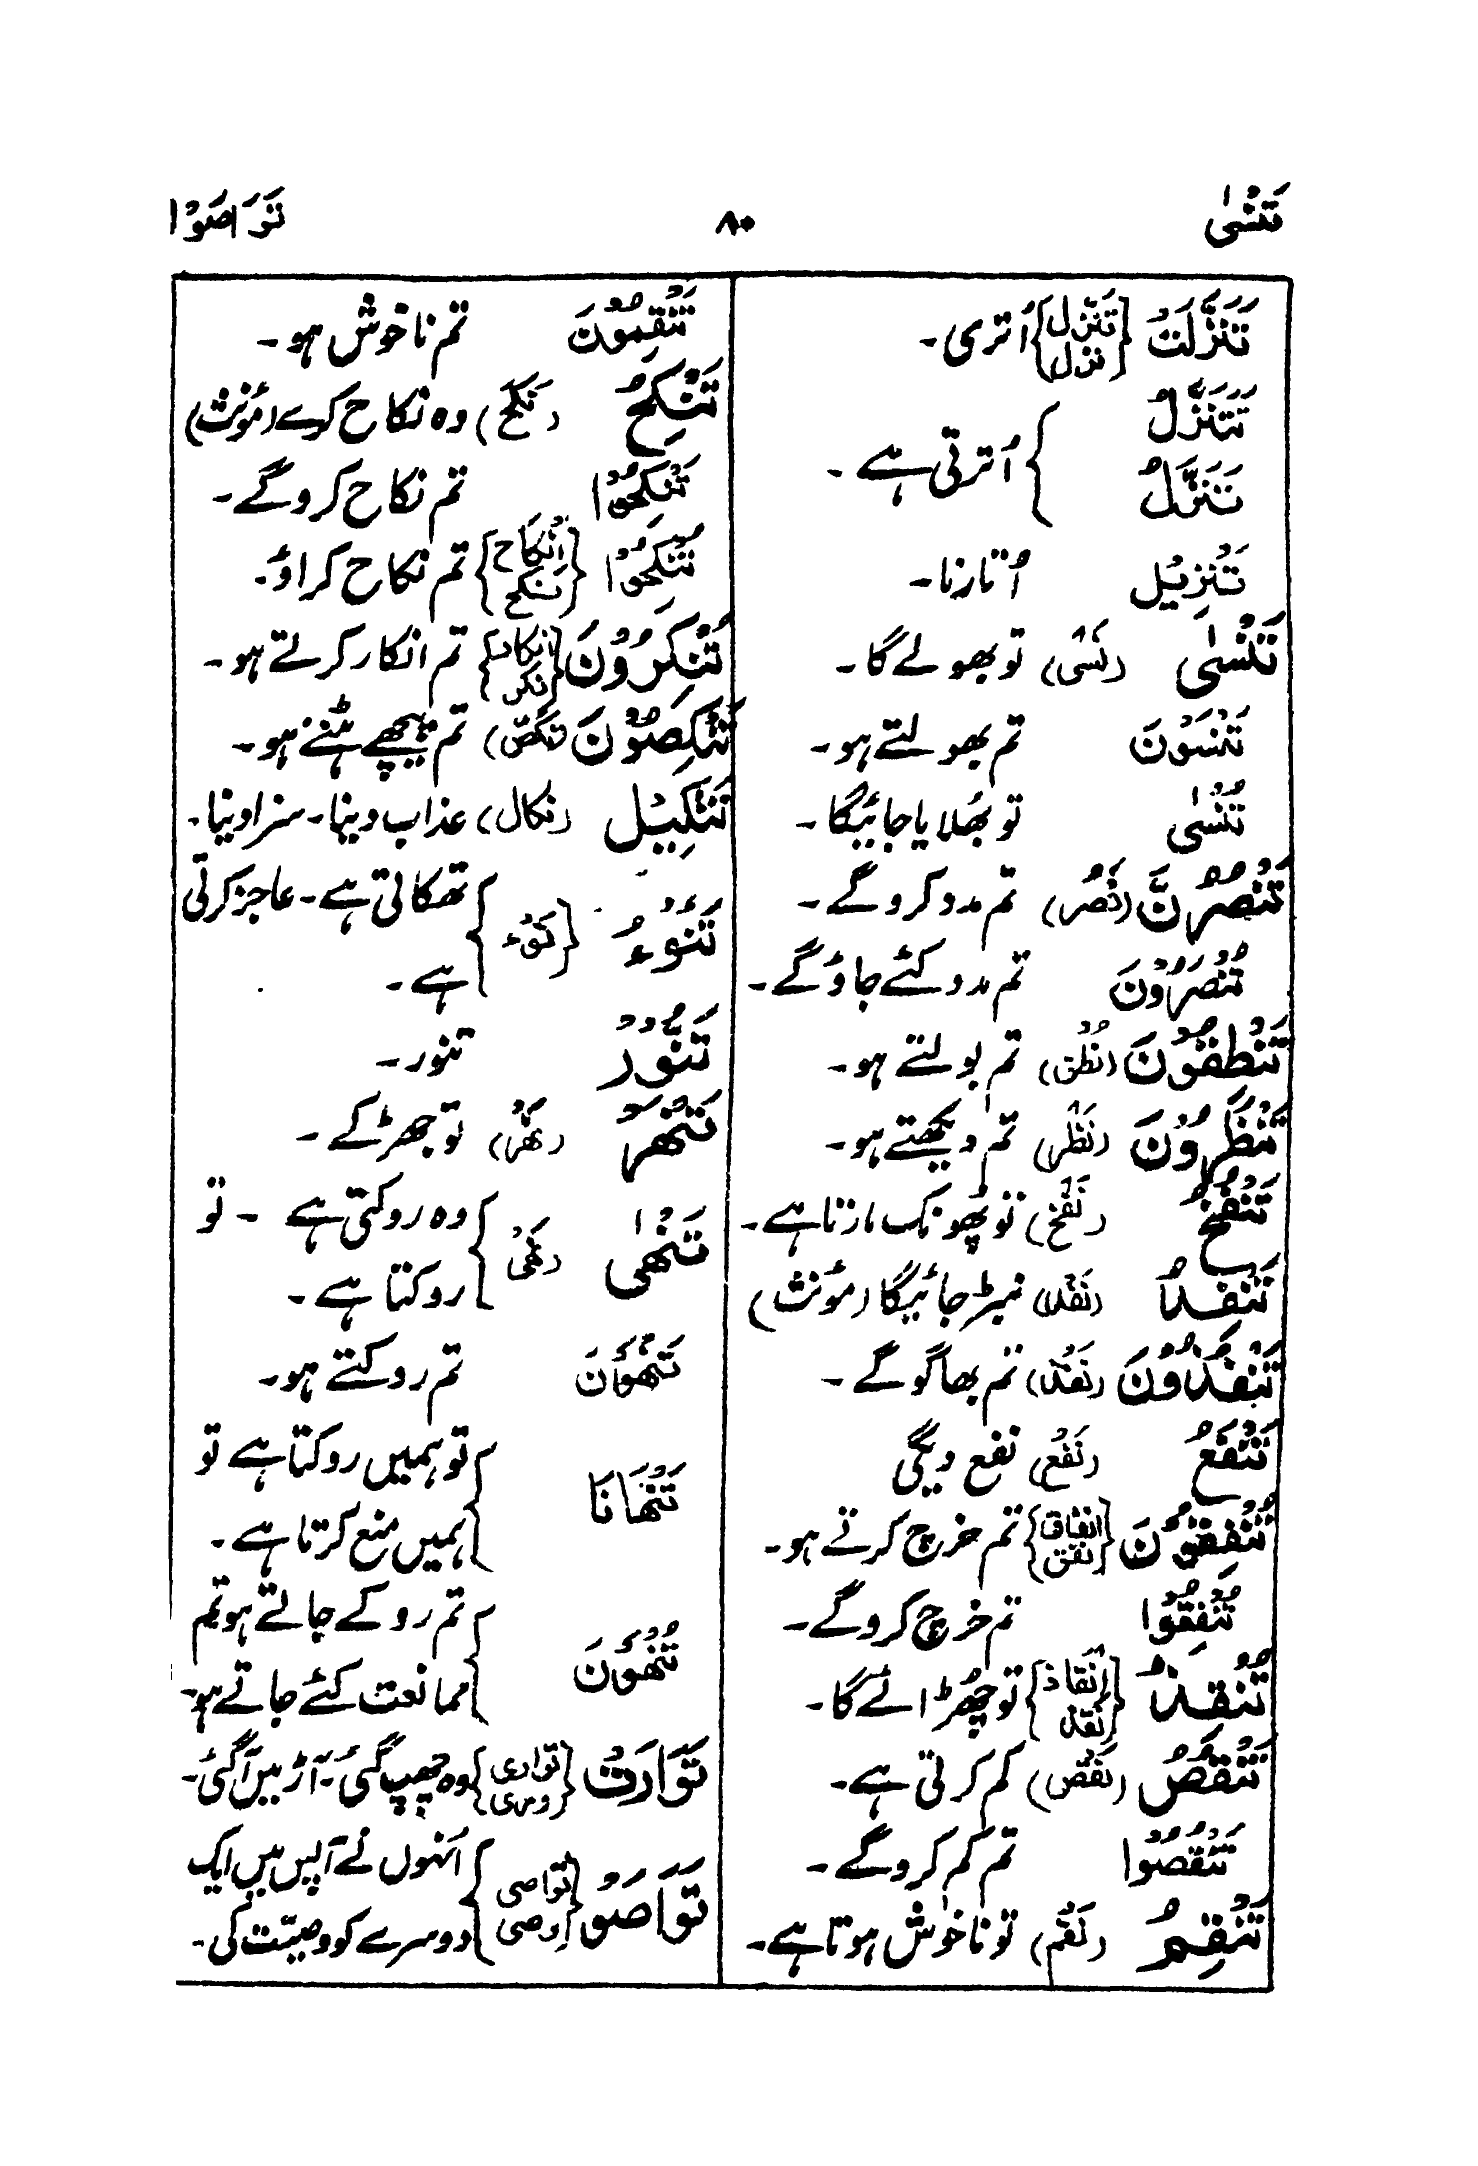 تَنْسٰی ۸۰ تَوَاصَوْا
تَنَزَّلَتْ {تَنَزُّل نزل} اُتری۔
تَتَنَزَّلُ
تَنَزَّلُ } اُترتی ہے۔
تَنْزِیْل اُتارنا۔
تَنْسٰی (نَسْی) تو بھولے گا۔
تَنْسَوْنَ تم بھولتے ہو۔
تُنْسٰی تو بھُلایا جائیگا۔
تَنْصُرُنَّ (نَصْر) تم مدد کروگے۔
تُنْصَرُوْنَ تم مدد کئے جاؤگے۔
تَنْطِقُوْنَ (نُطْق) تم بولتے ہو۔
تَنْظُرُوْنَ (نَظْر) تم دیکھتے ہو۔
تَنْفُخُ (نَفْخ) تو پھونک مارتا ہے۔
تَنْفَدَ (نَفَد) نبڑ جائیگا (مؤنث)
تَنْفُذُوْنَ (نَفُذ) تم بھاگوگے۔
تَنْفَعُ (نَفْع) نفع دیگی
تُنْفِقُوْنَ {انفاق نفق} تم خرچ کرتے ہو۔
تُنْفِقُوْا تم خرچ کروگے۔
تُنْقِذُ {اِنْقَاذ نقذ} تو چھڑالے گا۔
تَنْقُصُ (نَقْص) کم کرتی ہے۔
تَنْقُصُوْا تم کم کروگے۔
تَنْقِمُ (نَقْم) تو ناخوش ہوتا ہے۔
تَنْقِمُوْنَ تم ناخوش ہو۔
تَنْکِحُ (نکح) وہ نکاح کرے (مؤنث)
تَنْکِحُوْا تم نکاح کروگے۔
تُنْکِحُوْا {اِنْکَاح نکح} تم نکاح کراؤ۔
تُنْکِرُوْنَ {انکار نکر} تم انکار کرتے ہو۔
تَنْکِصُوْنَ (نکص) تم پیچھے ہٹتے ہو۔
تَنْکِیْل (نکال) عذاب دینا۔ سزا دینا۔
تَنُوْءُ {نَوْء} تھکاتی ہے۔ عاجز کرتی
ہے۔
تَنُّوْرُ تنور۔
تَنْهَرْ (نَهْر) تو جھڑکے۔
تَنْهٰی (نَهْی) وہ روکتی ہے ۔ تو
روکتا ہے۔
تَنْهَوْنَ تم روکتے ہو۔
تَنْهَانَا تو ہمیں روکتا ہے تو
ہمیں منع کرتا ہے۔
تُنْهَوْنَ تم روکے جاتے ہو تم
ممانعت کئے جاتے ہو۔
تَوَارَتْ {تواری وری} وہ چھپ گئی۔ آڑ میں آگئی۔
تَوَاصَوْ {تواصی وصی} اُنہوں نے آپس میں ایک
دوسرے کو وصیّت کی۔